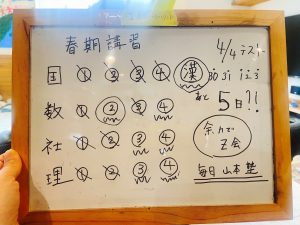 春期講習
4/4 テスト
国 ① ② ③ ④ 漢
あと
数 ① ② ③ ④
5日?!
社 ① ② ③ ④
余力で
Z会
理 ① ② ③ ④
毎日 山本塾